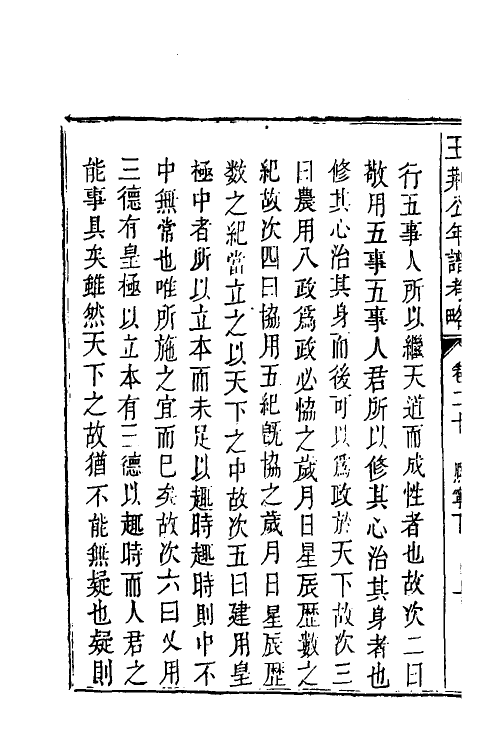 王荊公年譜考略 卷二十 熈寧下
行五事人所以繼天道而成性者也故次二曰
敬用五事五事人君所以修其心治其身者也
修其心治其身而後可以爲政於天下故次三
曰農用八政爲政必恊之歲月日星辰歴數之
紀故次四曰協用五紀旣協之歲月日星辰歴
數之紀當立之以天下之中故次五曰建用皇
極中者所以立本而未足以趣時趣時則中不
中無常也唯所施之宜而已矣故次六曰乂用
三德有皇極以立本有三德以趣時而人君之
能事具矣雖然天下之故猶不能無疑也疑則